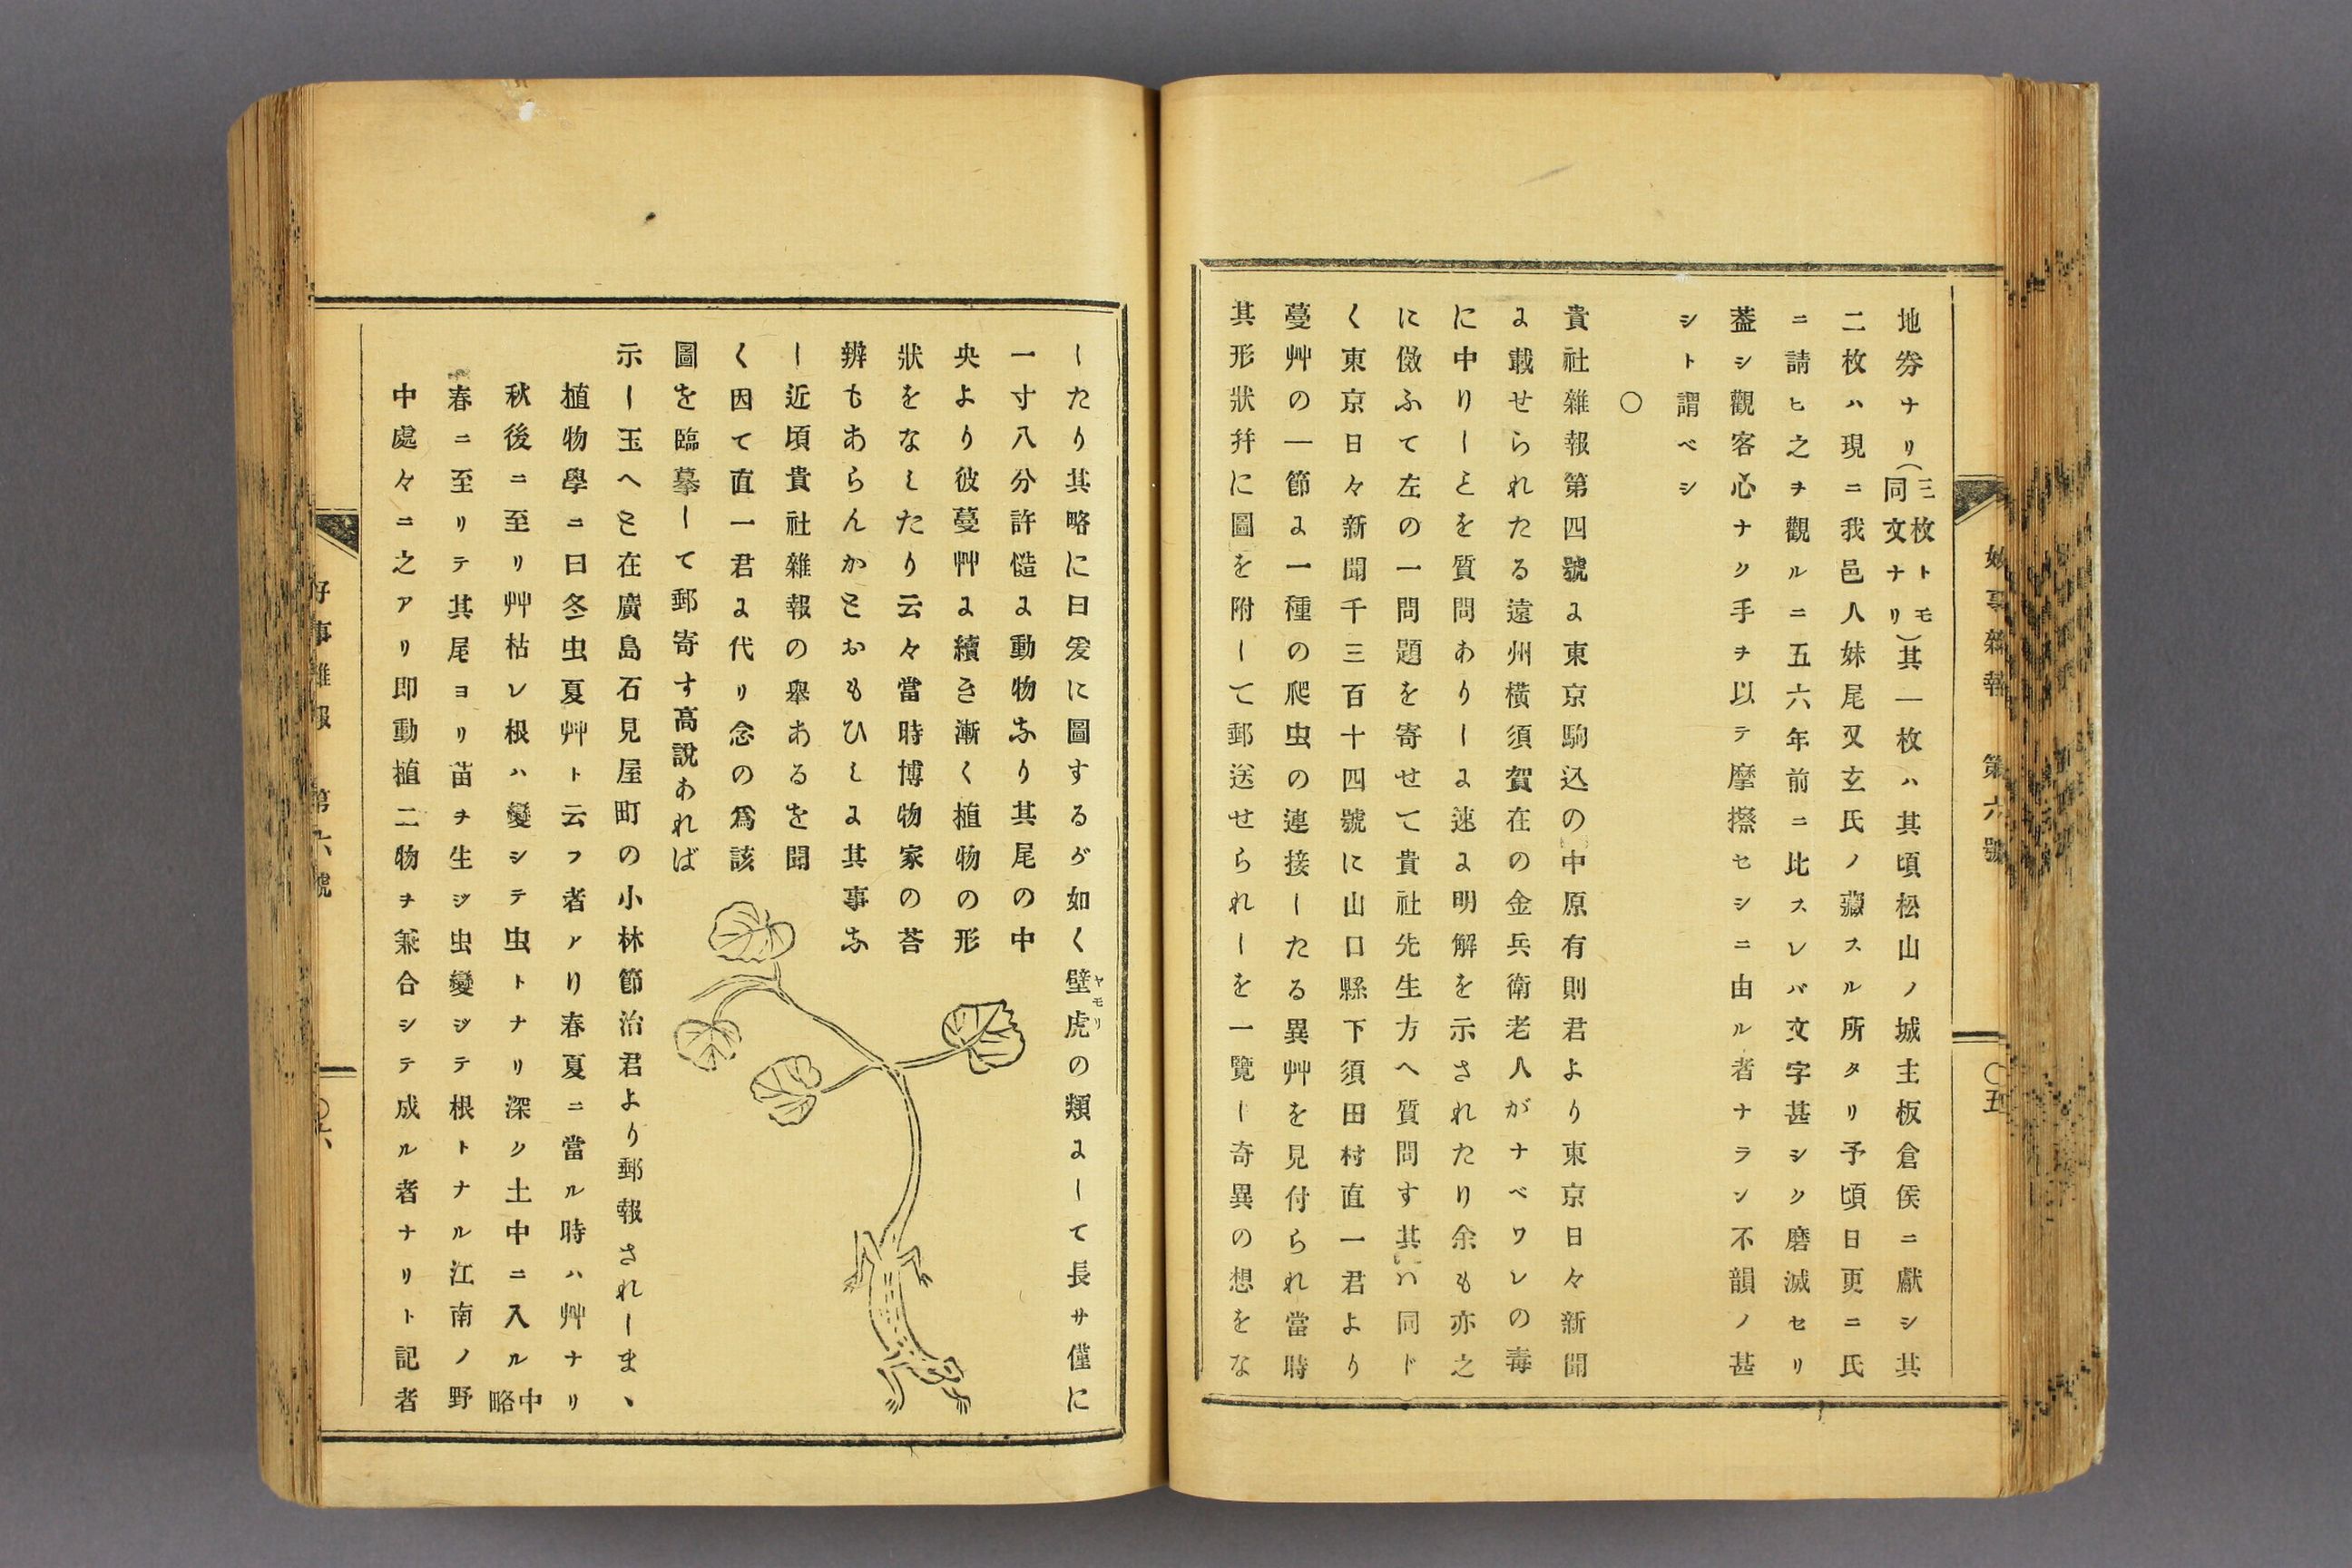 好事雜報　第六號　〇五
地劵ナリ(三枚トモ同文ナリ)其一枚ハ其頃松山ノ城主板倉侯ニ獻シ其
二枚ハ現ニ我邑人妹尾又玄氏ノ藏スル所タリ予頃日更ニ氏
ニ請ヒ之ヲ觀ルニ五六年前ニ比スレバ文字甚シク磨滅セリ
葢シ觀客心ナク手ヲ以テ摩擦セシニ由ル者ナラン不韻ノ甚
シト謂ベシ
〇
貴社雜報第四號ょ東京駒込の中原有則君より東京日々新聞
ょ載せられたる遠州橫須賀在の金兵衛老人がナベワレの毒
に中りしとを質問ありしょ速ょ明解を示されたり余も亦之
に傚ふて左の一問題を寄せて貴社先生方へ質問す其ハ同ド
く東京日々新聞千三百十四號に山口縣下須田村直一君より
蔓艸の一節ょ一種の爬虫の連接したる異艸を見付られ當時
其形狀幷に圖を附して郵送せられしを一覽し奇異の想をな
したり其略に曰爰に圖するが如く壁虎ヤモリの類ょして長サ僅に
一寸八分許慥ょ動物なり其尾の中
央より彼蔓艸ょ續き漸く植物の形
狀をなしたり云々當時博物家の荅
辨もあらんかとおもひしょ其事な
し近頃貴社雜報の舉あるを聞
く因て直一君ょ代り念の爲該
圖を臨摹して郵寄す高說あれば
示し玉へと在廣島石見屋町の小林節治君より郵報されしまゝ
植物學ニ曰冬虫夏艸ト云フ者アリ春夏ニ當ル時ハ艸ナリ
秋後ニ至リ艸枯レ根ハ變シテ虫トナリ深ク土中ニ入ル中略
春ニ至リテ其尾ヨリ苗ヲ生ジ虫變ジテ根トナル江南ノ野
中處々ニ之アリ卽動植二物ヲ兼合シテ成ル者ナリト記者
好事雜報　第六號　〇六